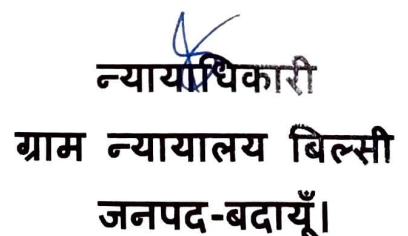 न्यायाधिकारी
ग्राम न्यायालय बिल्सी
जनपद-बदायूँ।